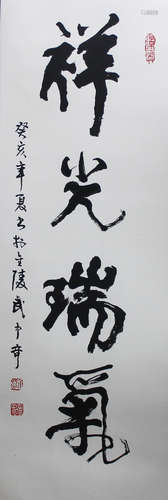 祥光瑞氣
癸亥年夏書於金陵武中奇